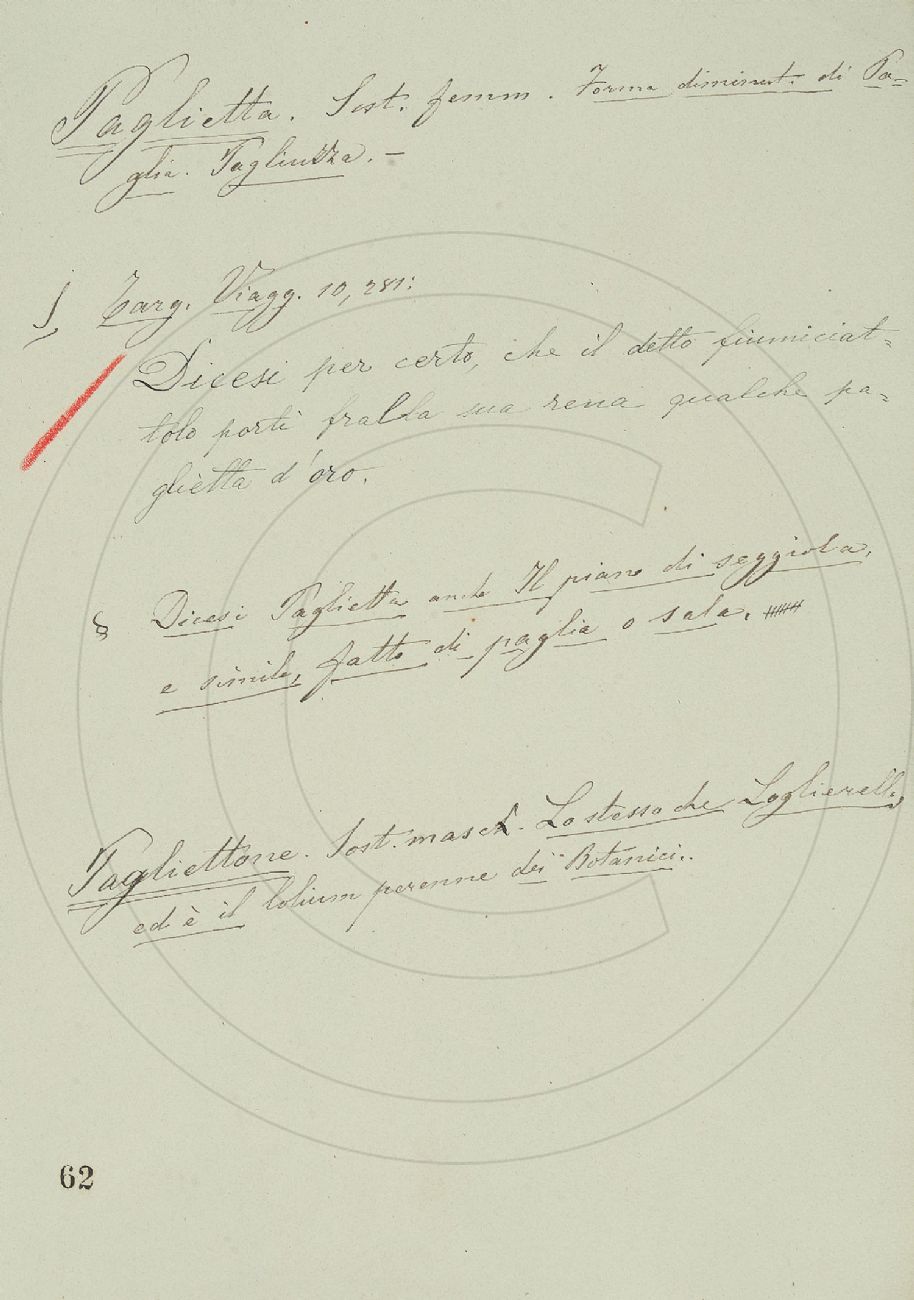 Paglietta. Sost. femm. Forma diminut. di Pa-
glia. Pagliuzza. –
§ Targ. Viagg. 10, 281:
Dicesi per certo, che il detto fiumiciat-
tolo porti fralla sua rena qualche pa-
glietta d'oro.
§ Dicesi Paglietta anche Il piano di seggiola,
e simile, fatto di paglia o sala.
Pagliettone. Sost. masch. Lo stesso che Loglierella,
ed è il lolium perenne dei Botanici.
62